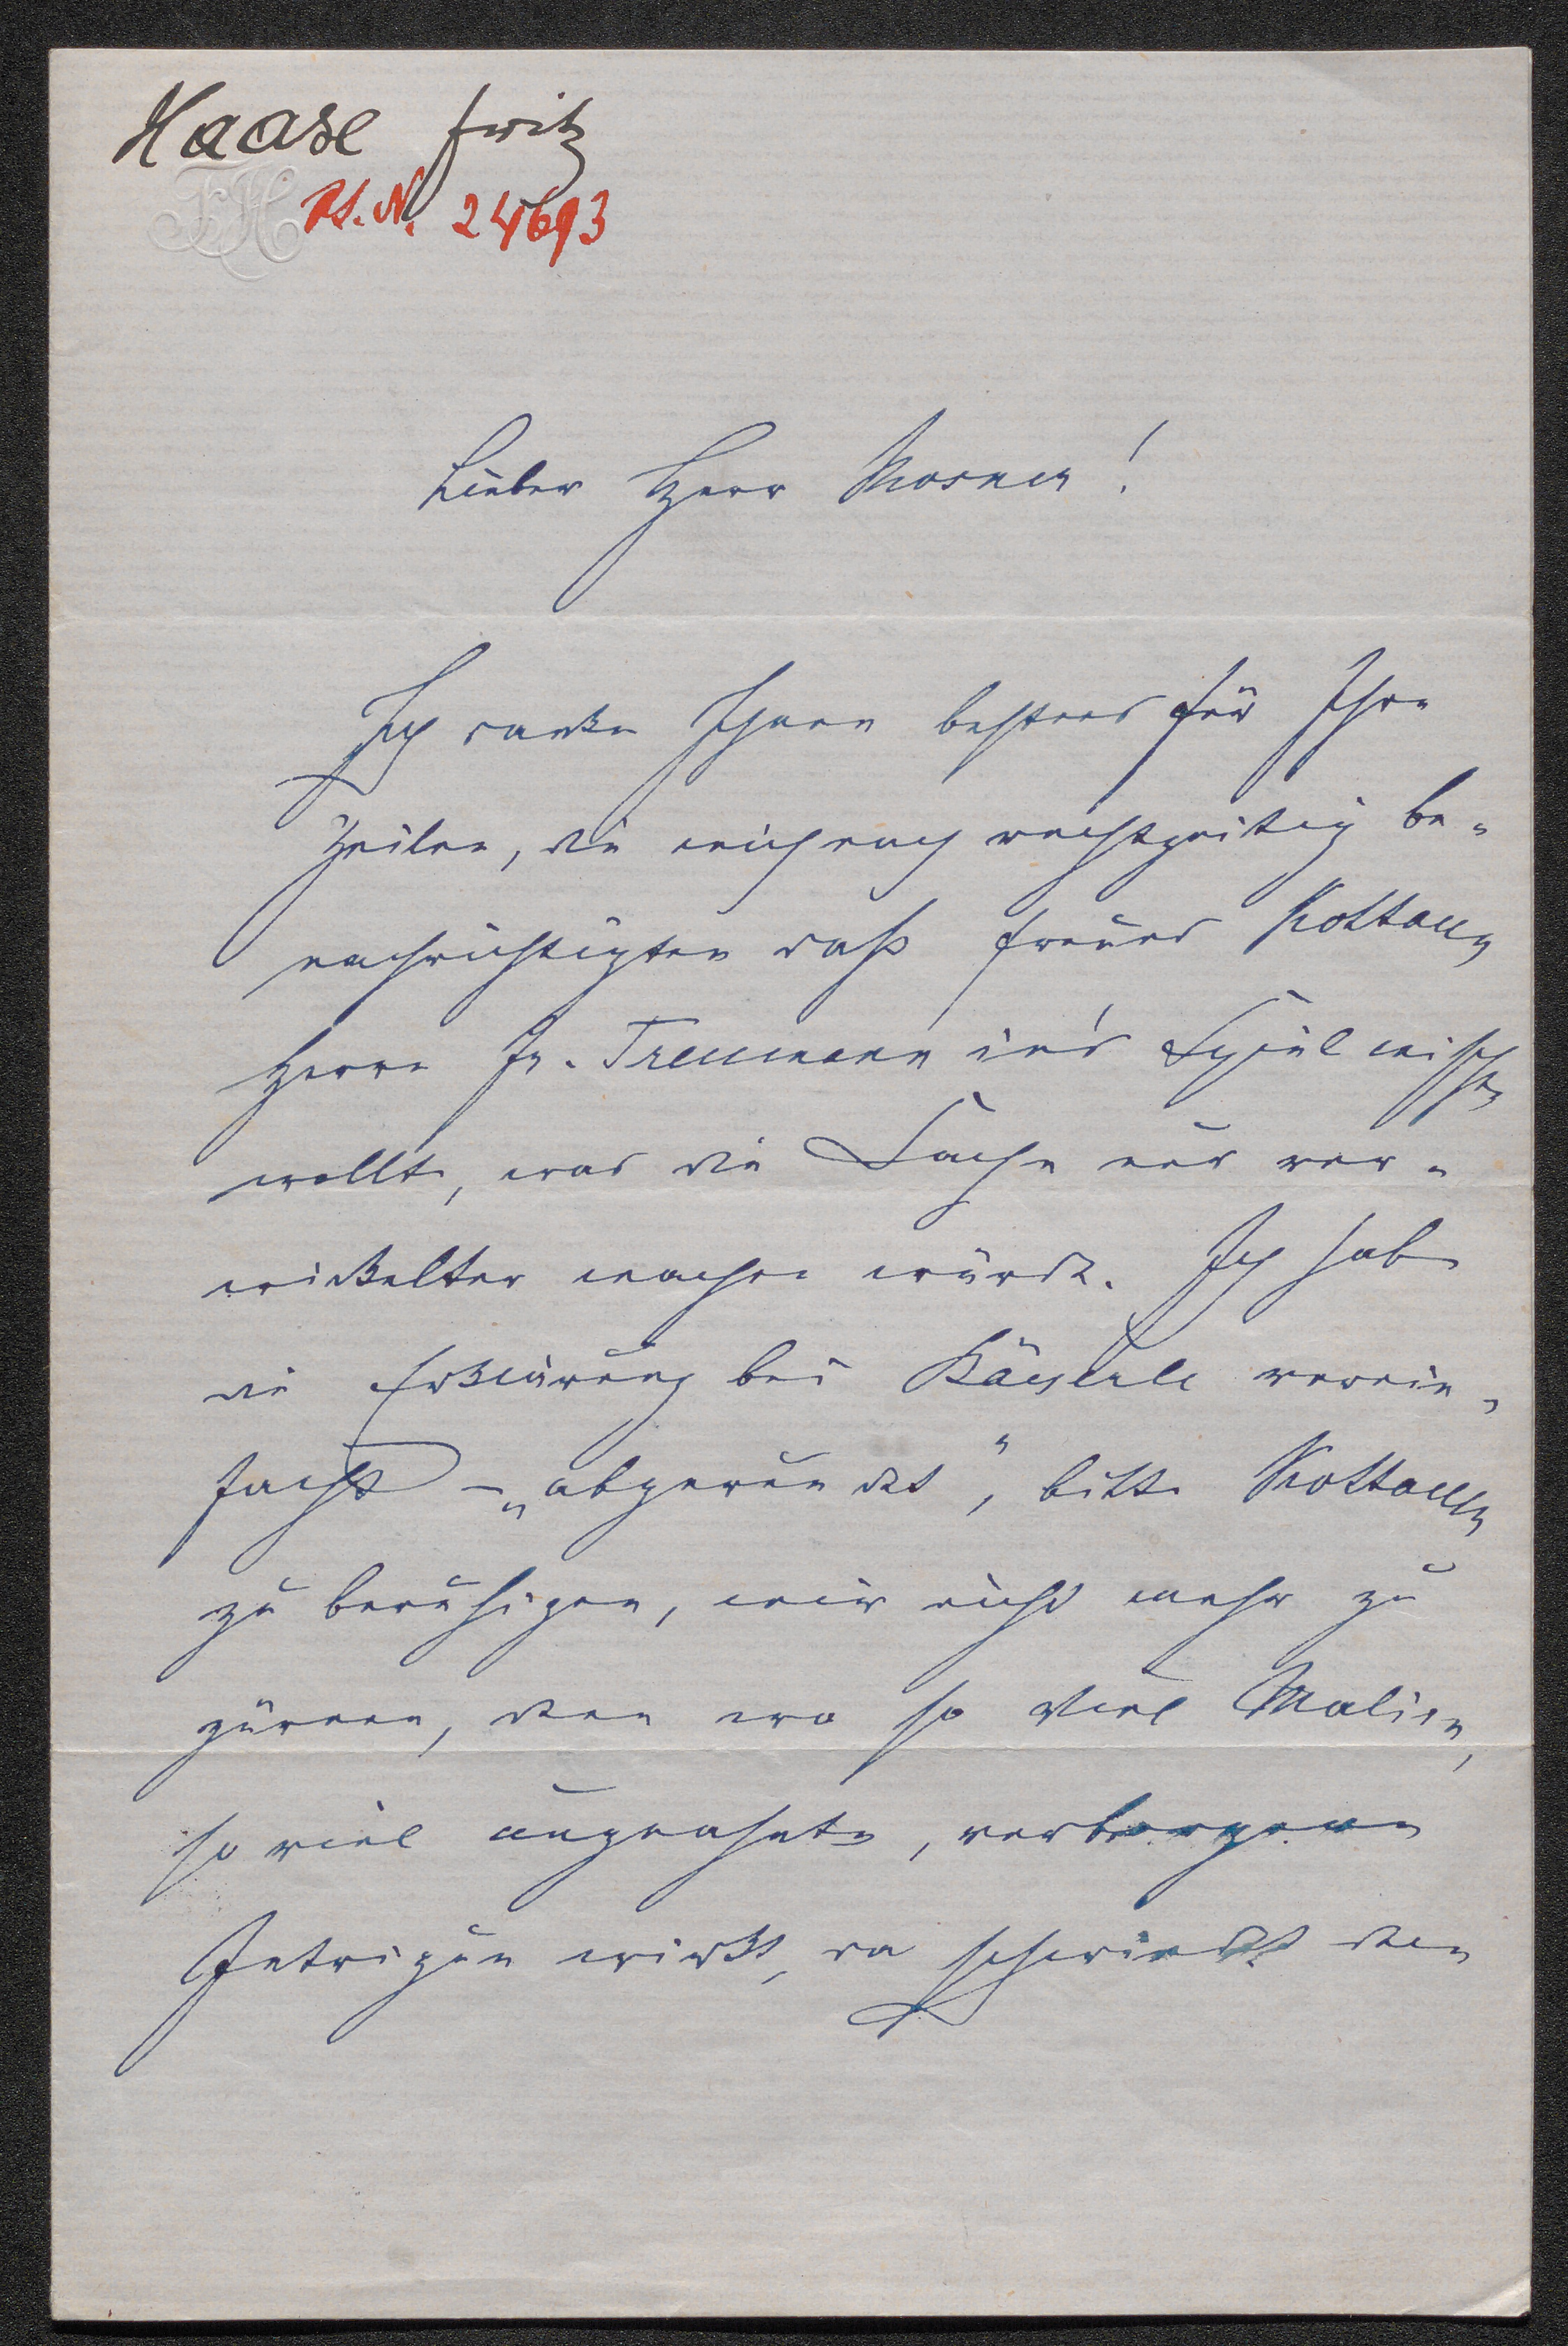 Haase Fritz
FH
Rl. N. 24693
Lieber Herr Rosner!
Ich danke Ihnen bestens für Ihre
Zeilen, die mich noch rechtzeitig be-
nachrichtigten daß Freund Kottaun
Herrn Dr. Treumann in's Spiel mischen
wollte, was die Sache nur ver-
wickelter machen würde. Ich habe
die Erklärung bei Käyserle verein-
facht – „abgerundet", bitte Kottaun
zu beruhigen, mir nicht mehr zu
zürnen, denn wo so viel Malice,
so viel ungeahnte, verborgene
Intrigue wirkt, da schwindet den